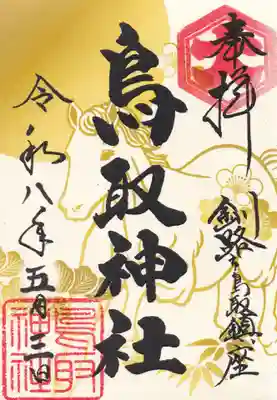 奉拝
釧路之鳥取鎮座
鳥取神社
令和八年五月三日
鳥取神社